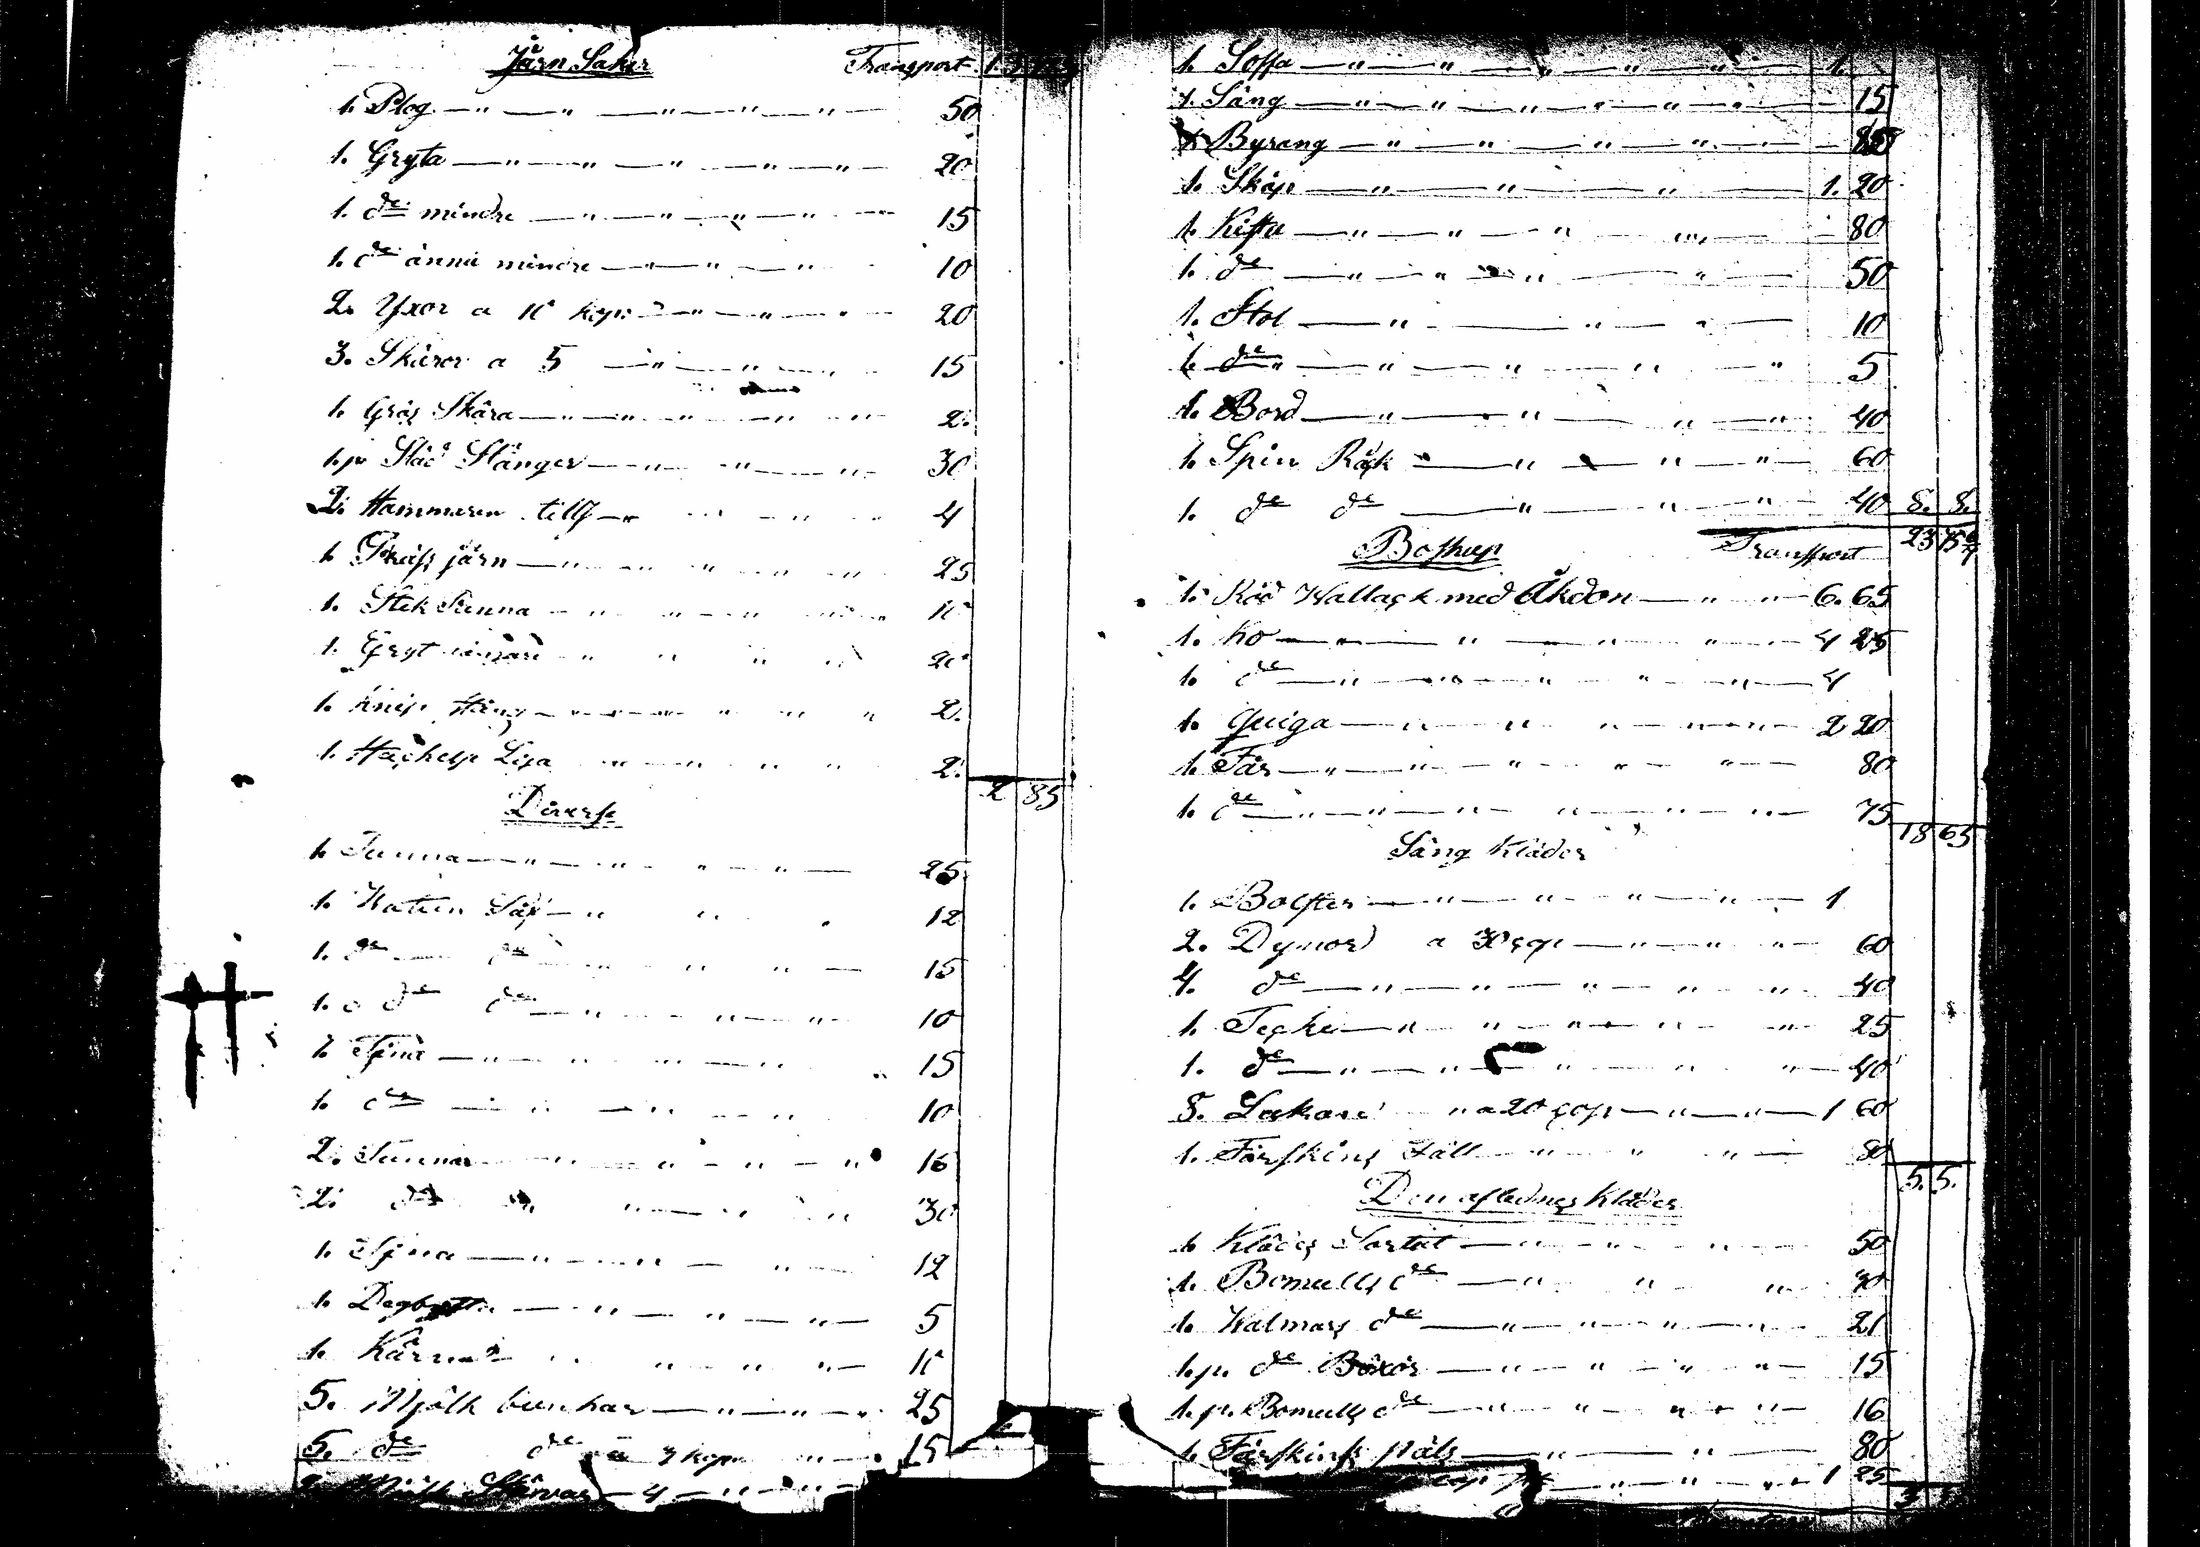 Järn Saker Transport
1. Plog 50
1. Gryta 20
1. do mindre 15
1. do ännu mindre 10
2. Yxor a 10 kop 20
3. Skäror a 5 15
1. Gräs Skära 2.
1. pr Släd Stänger 30
2. Hammaren tills 4
1. järn 25
1. Stek Panna 10
1. Gryt 20
1. Knip tång 2.
1. 2.
2 85
Diverse
1. Tunna 25
1. Watten Så 12
1. do do 15
1. do do 10
1. Tina 15
1. do 10
2. Tunnor 16
2. do 30
1. Tina 12
1. Degbytta 5
1. Kärna 10
5. Mjölk bunkar 25
5. do do a 3 kop 15
4
1. Soffa 1.
1. Säng 15
1. Byrang
1. Skåp 1. 20
1. Kista 80
1. do 50
1. Stol 10
1. do 5
1. Bord 40
1. Spin Råck 60
1. do do 40 8. 8.
Boskap Transport
1. Röd Wallack med Åkdon 6. 65
1. Ko 4 25
1. do 4
1. Quiga 2 20
1. Får 80
1. do 75
18 65
Säng Kläder
1. Bolster 1
2. Dynor a 30 cop 60
4. do 40
1. Tecke 25
1. do 40
8. Lakan a 20 cop 1 60
1. Fårskins Fäll 80
5. 5.
Den aflednes Kläder
1. Klädes Sortut 50
1. Bomulls do
1. Walmars do 21
1. pr. do Böxor 15
1. pr. Bomulls do 16
1. Fårskins päls 80
1 25